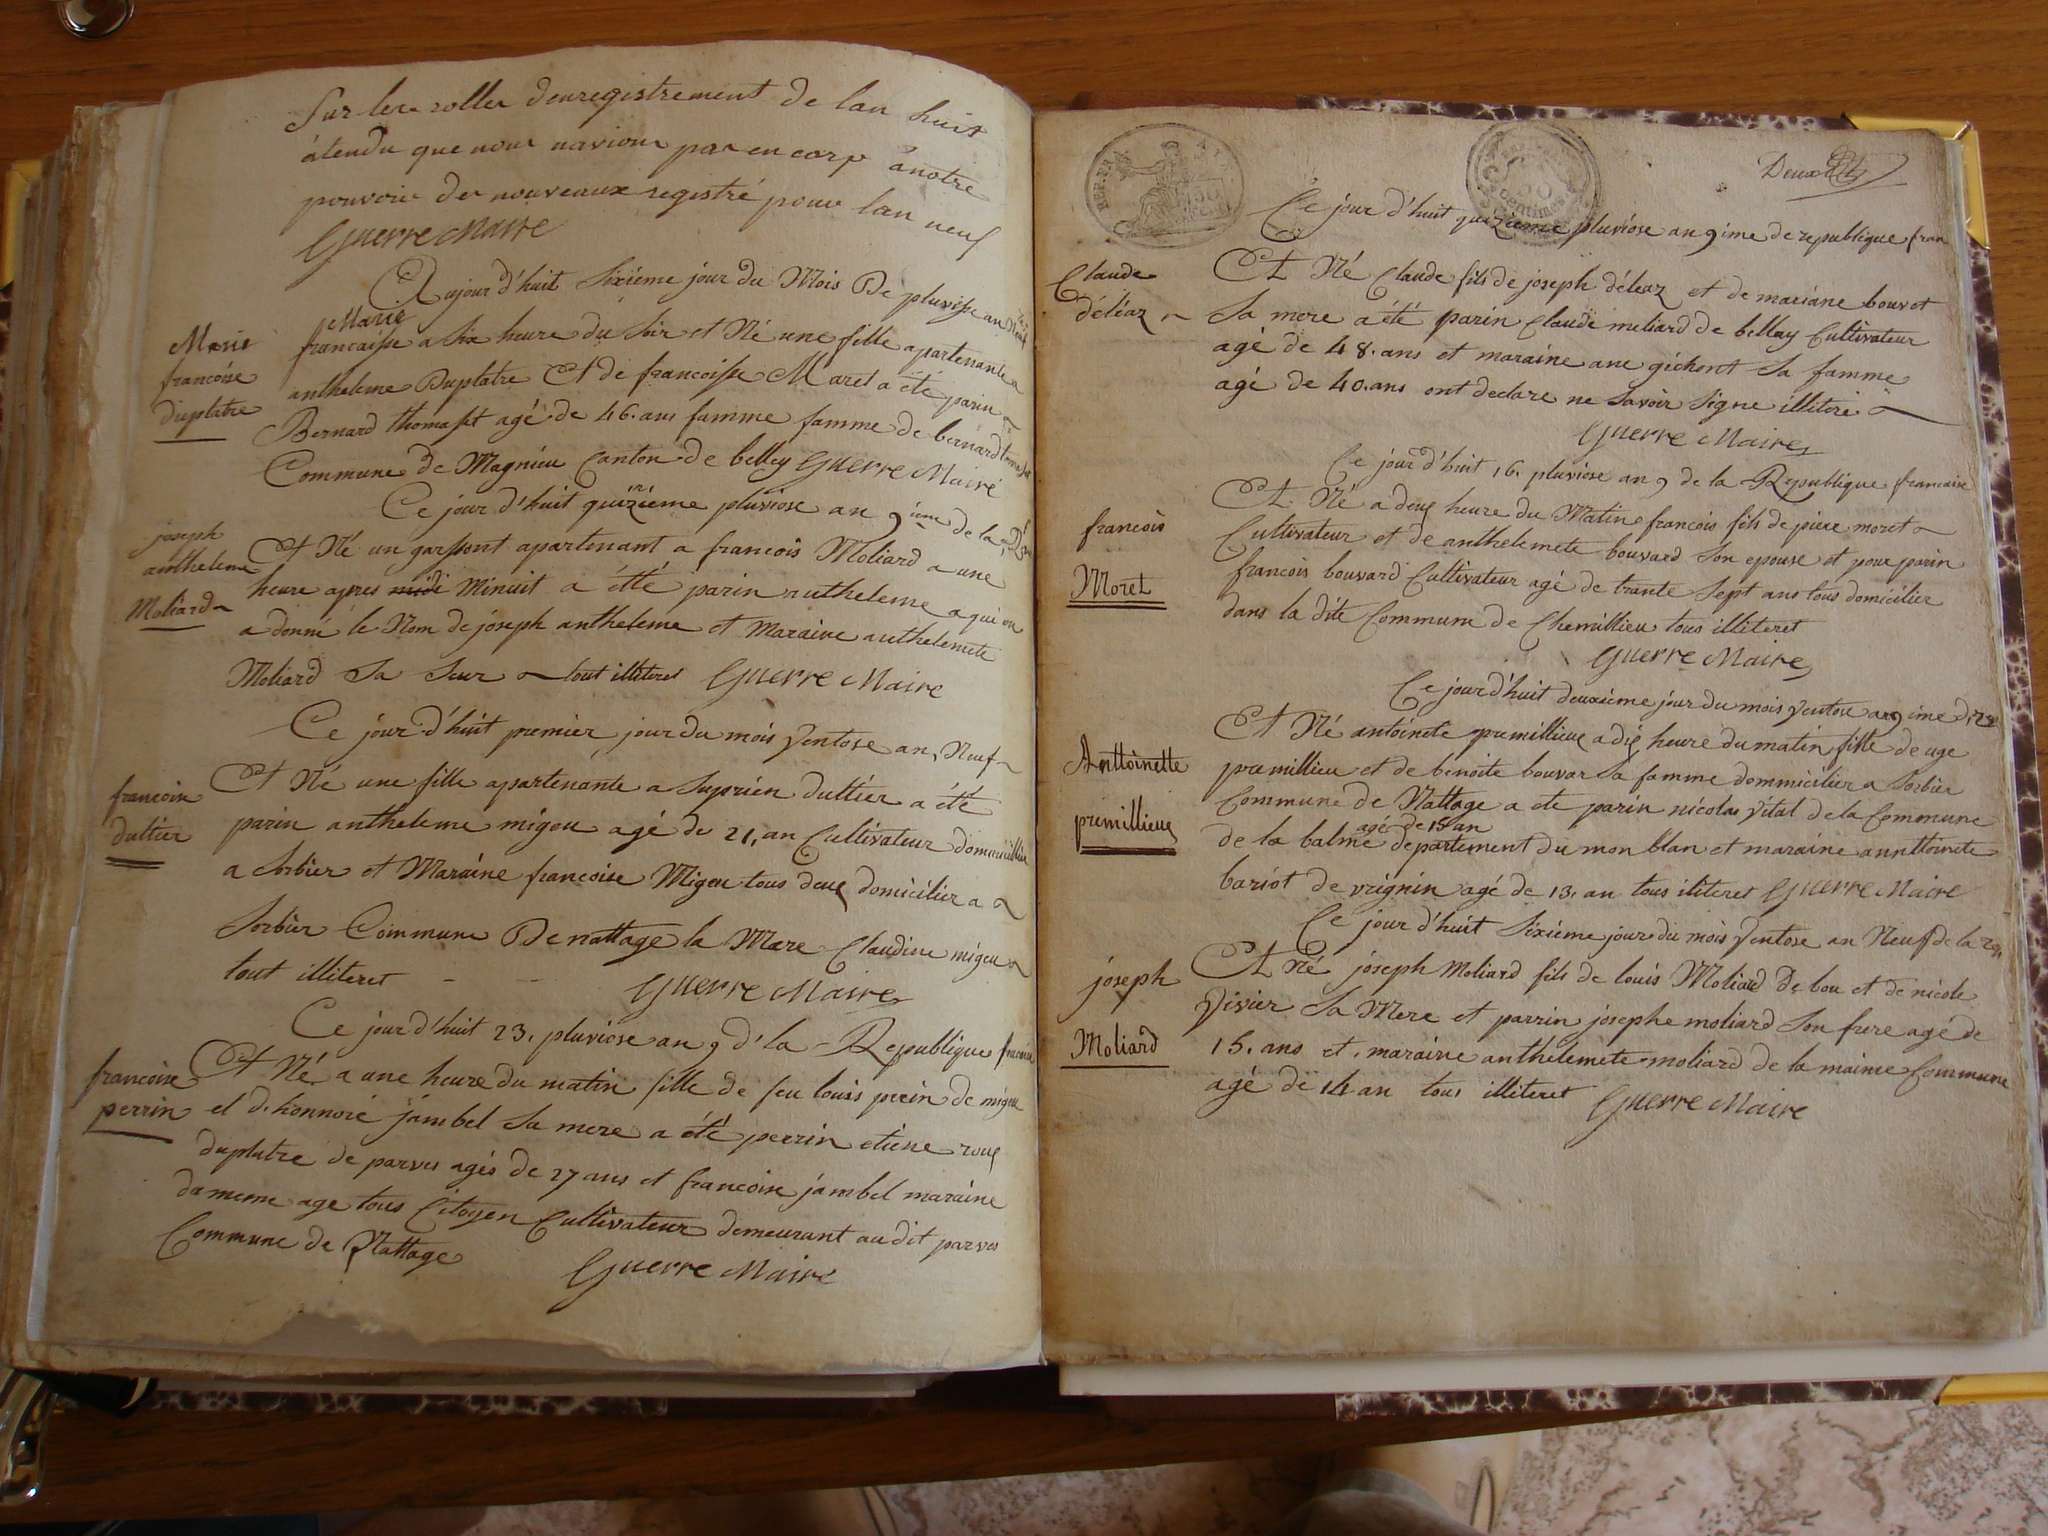 Sur les rolles denregistrement de lan huit
atendu que nous navions pas en corp a notre
pouvoir des nouveaux registré pour lan neuf
Guerre Maire
Aujour d'huit sixiéme jour du Mois De pluviosse an
Marie
francoise
dieplatre
Marie
francaisse a six heure du soir et Né une fille apartenante a
antheleme Duplatre Et de francoisse Maret a été parin
Bernard thomasset agé de 46. ans famme famme de bernard
Commune de Magnieu Canton de belley Guerre Mairé
Ce jour d'huit quizième pluviose an 9 ime de la
joseph
antheleme
Moliard
Et Né un garssont apartenant a francois Moliard a une
heure apres midi Minuit a étté parin antheleme a qui on
a donné le Nom de joseph antheleme et Maraine anthelemete
Moliard Sa Seur tout illiteret Guerre Maire
Ce jour d'huit premier jour du mois Ventose an Neuf
francoise
dultier
Et Né une fille apartenante a Suprien dultier a été
parin antheleme migeu agé de 21. an Cultivateur
a Sorbier et Maraine francoise Migeu tous deux domicilier a
Sorbier Commune De nattage la Mere Claudine migeu
tout illiteret - - Guerre Maire
Ce jour d'huit 23. pluviose an 9 d' la Republique francaise
francoise
perrin
Et Né a une heure du matin fille de feu louis perin de migeu
et d. honnoré jambel Sa mere a été perrin etiene roux
duplatre de parves agés de 27 ans et francoise jambel maraine
du meme age tous Citoyen Cultivateur demeurant au dit parves
Commune de Nattage Guerre Mairé
REP. FRA
50
centimes
Deux
Ce jour d'huit quizieme pluviose an 9 ime de republique fran
Claude
déléaz
Et Né Claude fils de joseph déleaz et de mariane bouvet
Sa mere a été parin Claude meliard de bellay Cultivateur
agé de 48. ans et maraine ane gichont Sa famme
agé de 40. ans ont declare ne Savoir Signe illiteré
Guerre Maire
Ce jour d'huit 16. pluviose an 9 de la Republique francaise
francois
Moret
Et Né a deux heure du Matin francois fils de piere moret
Cultivateur et de anthelemete bouvard Son epouse et pour parin
francois bouvard Cultivateur agé de trante Sept ans tous domicilier
dans la dite Commune de Chemillieu tous illiteret
Guerre Maire
Ce jour d'huit deuxieme jour du mois Ventose an 9 ime
Anttoinette
premillieux
Et Né antoinete premillieux a dix heure du matin fille de
premillieu et de benoite bouvar Sa famme dommicilier a Sorbier
Commune de Nattage a ete parin nicolas Vital de la Commune
agé de 15 an
de la balme departement du mon blan et maraine annttoinete
bariot de vrignin agé de 13. an tous iliteret Guerre Maire
Ce jour d'huit Sixieme jour du mois Ventose an Neuf de la
joseph
Moliard
Et Né joseph Moliard fils de louis Moliard De bou et de nicole
Vivier Sa Mere et parrin josephe moliard Son frere agé de
15. ans et maraine anthelemete moliard de la maime Commune
agé de 14 an tous illiteret Guerre Maire